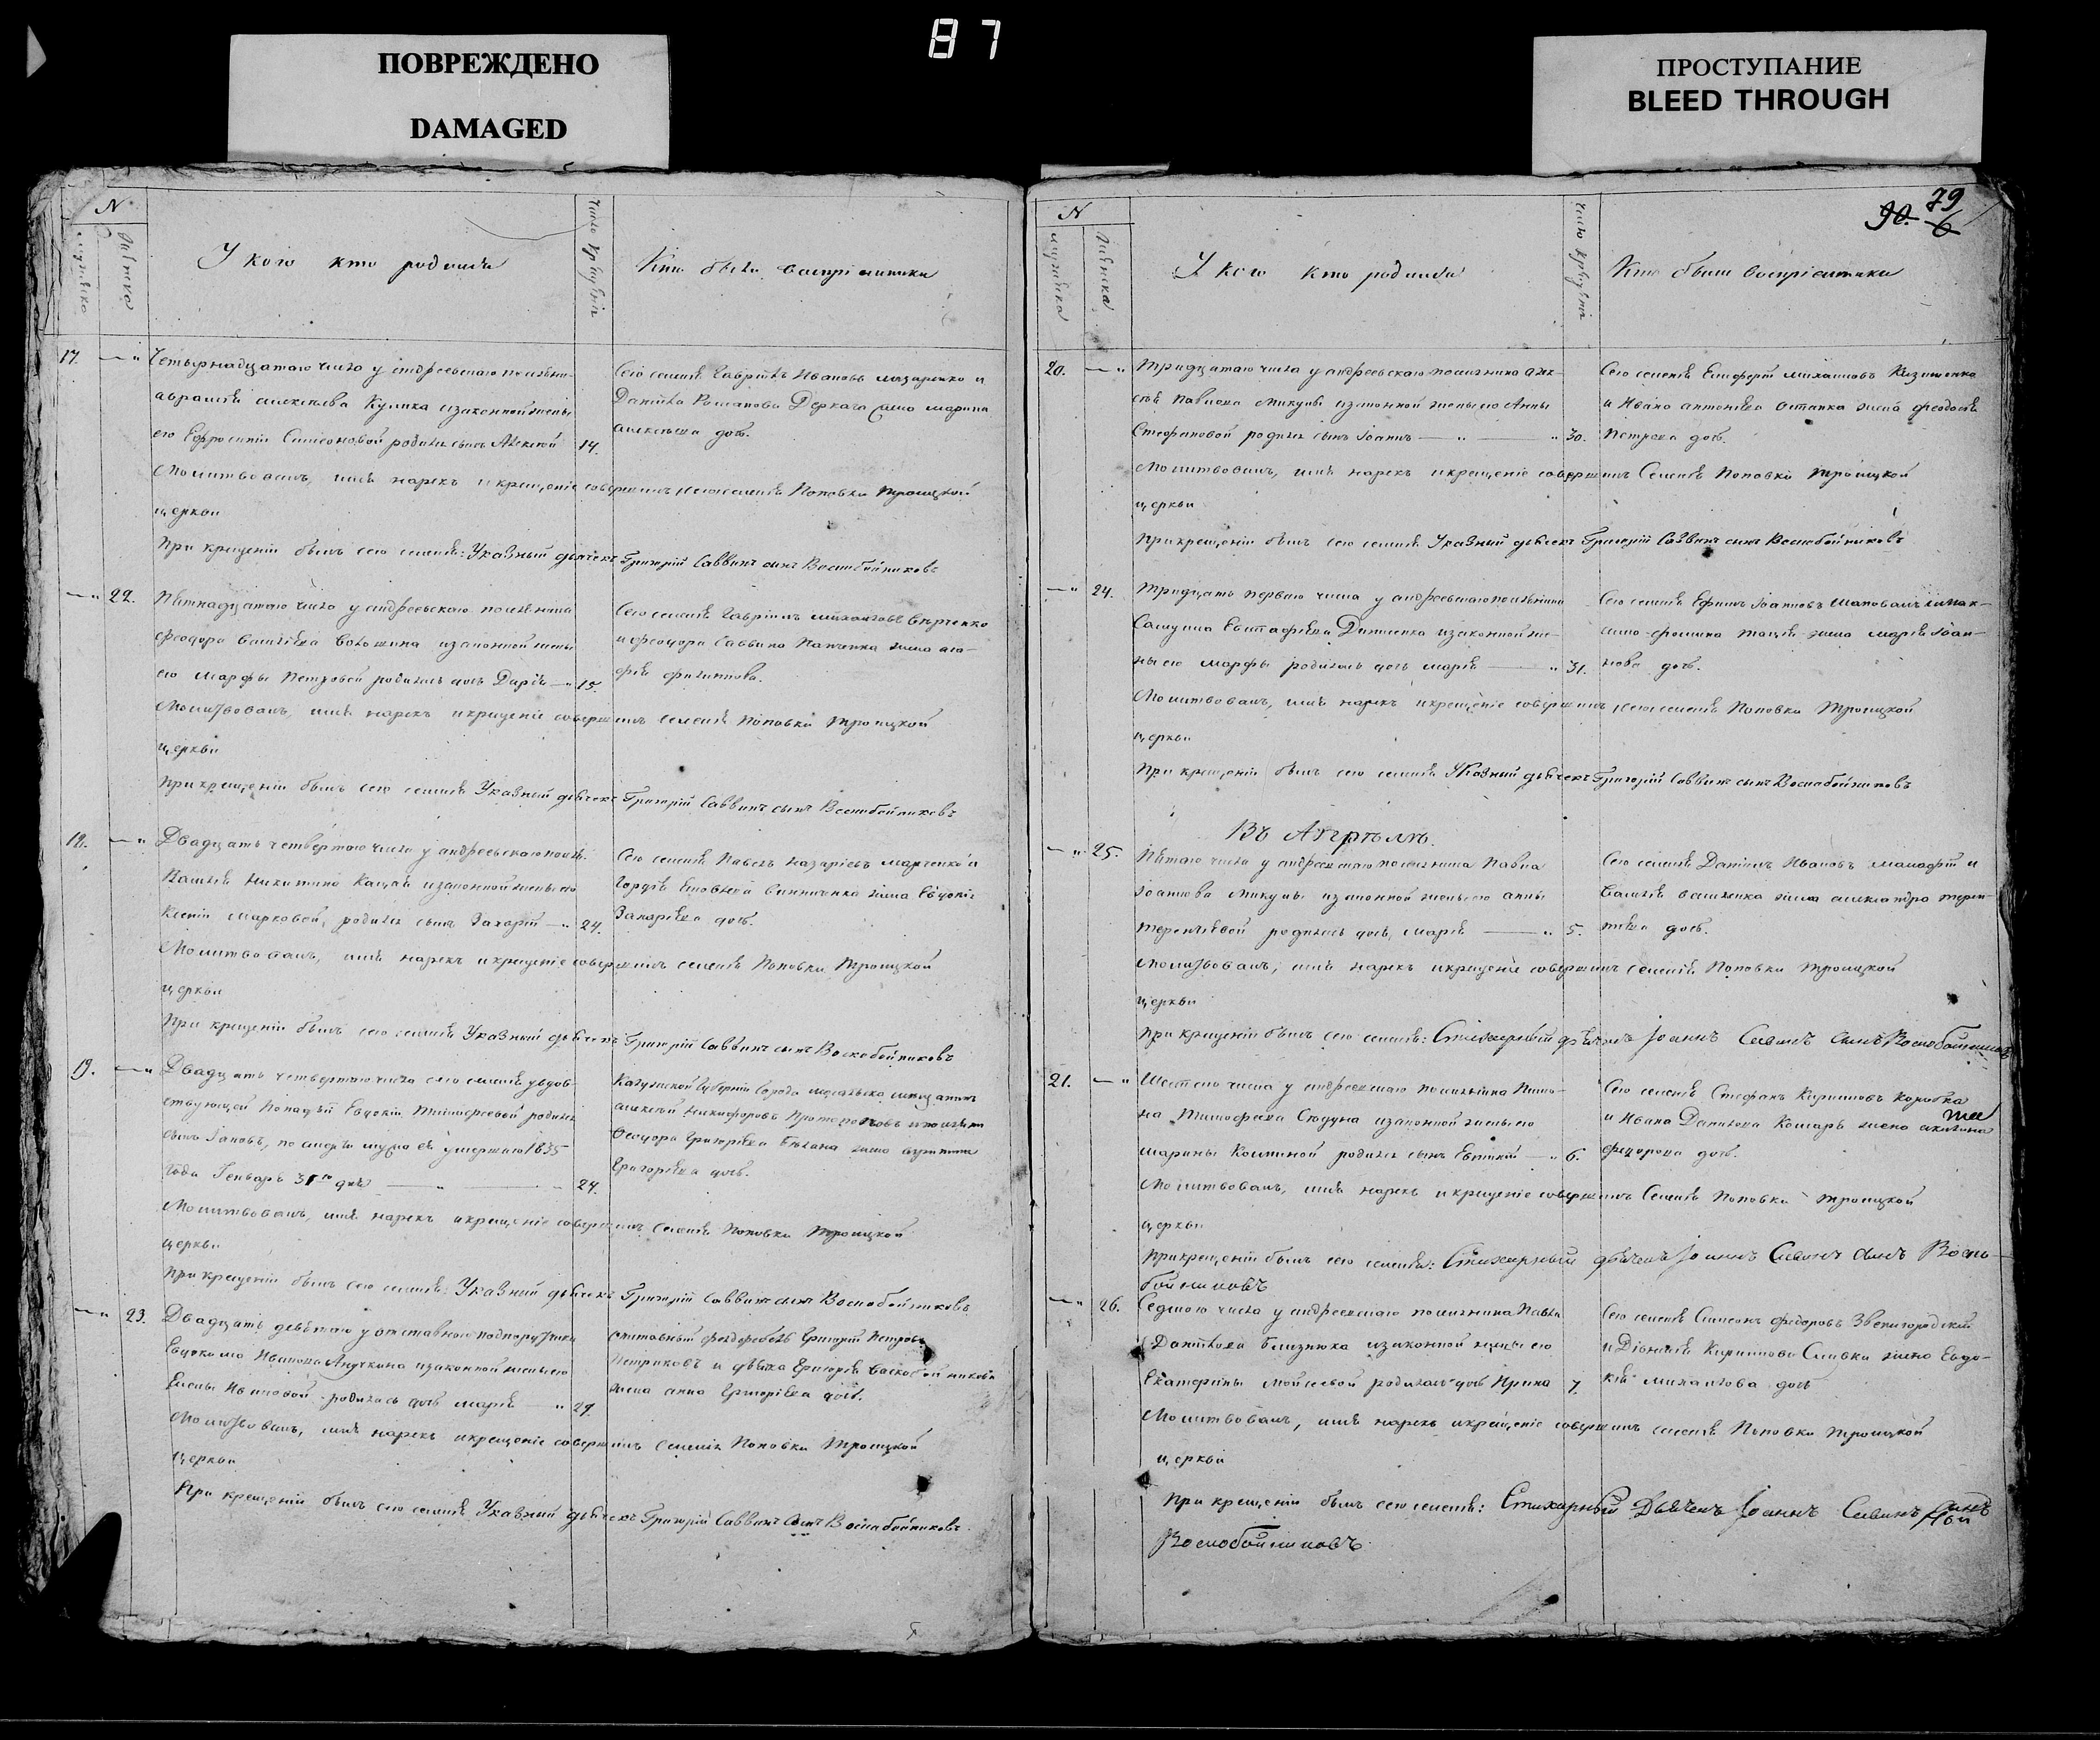 87
ПОВРЕЖДЕНО
DAMAGED
ПРОСТУПАНИЕ
BLEED THROUGH
N
мужеска
женска
У кого кто родился
Число крещенія
Кто были воспріемники
17.
Четырнадцатаго числа у андреевскаго поселяни-
Авраамія Алексѣева Кулика изаконной жены
его Ефросиніи Симеоновой родился сынъ Алексѣй 14.
Сего селенія Гавріилъ Ивановъ Назаренко и
Даніила Романова Деркача жена марина
алексѣева дочь.
Молитвовалъ, имя нарекъ и крещеніе совершилъ селенія Поповки Троицкой
церкви
При крещеніи былъ сего селенія: Указный дьячекъ Григорій Саввинъ сынъ Воскобойниковъ
22.
Пятнадцатаго числа у андреевскаго поселянина
Феодора Василіева Волошина изаконной жены
его Марфы Петровой родилась дочь Дарія 15.
Сего селенія Гавріилъ Михайловъ
и феодора Саввина жена ага-
фія филиппова.
Молитвовалъ, имя нарекъ и крещеніе совершилъ селенія Поповки Троицкой
церкви
При крещеніи былъ сего селенія Указный дьячекъ Григорій Саввинъ сынъ Воскобойниковъ
18.
Двадцать четвертаго числа у андреевскаго посел.
Никитина изаконной жены его
Ксеніи Марковой, родился сынъ Захарій 24.
Сего селенія Павелъ Назаріевъ Марченко и
жена Евдокія
Захаріева дочь.
Молитвовалъ, имя нарекъ и крещеніе совершилъ селенія Поповки Троицкой
церкви
При крещеніи былъ сего селенія Указный дьячекъ Григорій Саввинъ сынъ Воскобойниковъ
19.
Двадцать четвертаго числа сего селенія у вдов-
ствующей Попадьи Евдокіи Тимофеевой родился
сынъ Іаковъ, по смерти мужа ея умершаго 1835
года Генваря 31го дня 24.
Калужской Губерніи Города
алексѣй Никифоровъ
Феодора Григоріева жена
Григоріева дочь.
Молитвовалъ, имя нарекъ и крещеніе совершилъ селенія Поповки Троицкой
церкви
При крещеніи былъ сего селенія: Указный дьячекъ Григорій Саввинъ сынъ Воскобойниковъ
23.
Двадцать девятаго у отставнаго подпоручика
Евдокима Иванова изаконной жены его
Елены Ивановой родилась дочь марія 29.
отставный фелдфебель Григорій Петровъ
Петриковъ и дьяка Григорія Васкобойникова
жена анна Григоріева дочь.
Молитвовалъ, имя нарекъ и крещеніе совершилъ селенія Поповки Троицкой
церкви
При крещеніи былъ сего селенія Указный дьячекъ Григорій Саввинъ сынъ Воскобойниковъ.
N
мужеска
женска
У кого кто родился
Число крещенія
Кто были воспріемники
90. 79
6
20.
Тридцатаго числа у андреевскаго поселянина алек-
сѣя Павлова Микулы изаконной жены его Анны
Стефановой родился сынъ Іоаннъ 30.
Сего селенія михайловъ
и Ивана антоніева Остапка жена феодосія
Петрова дочь.
Молитвовалъ, имя нарекъ и крещеніе совершилъ Селенія Поповки Троицкой
церкви
При крещеніи былъ сего селенія Указный дьячекъ Григорій Саввинъ сынъ Воскобойниковъ
24.
Тридцать перваго числа у андреевскаго поселянина
Самуила Евстафіева изаконной же-
ны его марфы родилась дочь марія 31.
Сего селенія Ефимъ Іоанновъ
жена марія Іоан-
нова дочь.
Молитвовалъ, имя нарекъ и крещеніе совершилъ селенія Поповки Троицкой
церкви
При крещеніи былъ сего селенія Указный дьячекъ Григорій Саввинъ сынъ Воскобойниковъ
Въ Апрѣлѣ.
25.
Пятаго числа у андреевскаго поселянина Павла
Іоаннова Микулы изаконной жены его анны
терентіевой родилась дочь, марія 5.
Сего селенія Даніилъ Ивановъ и
Василія жена александра терен-
тіева дочь.
Молитвовалъ, имя нарекъ и крещеніе совершилъ селенія Поповки Троицкой
церкви
При крещеніи былъ сего селенія: Стихарный дьячекъ Іоаннъ Савинъ сынъ Воскобойниковъ
21.
Шестаго числа у андреевскаго поселянина
Тимофеева изаконной жены его
марины родился сынъ Евтихій 6.
Сего селенія Стефанъ Кириловъ Коробка
и Ивана Данилова Кошаръ жена
федорова дочь.
Молитвовалъ, имя нарекъ и крещеніе совершилъ Селенія Поповки Троицкой
церкви
При крещеніи былъ сего селенія: Стихарный дьячекъ Іоаннъ Савинъ сынъ Воско-
бойниковъ
26.
Седмаго числа у андреевскаго поселянина Павла
Даніилова близнюка изаконной жены его
Екатерины Мойсеевой родилась дочь Ирина 7.
Сего селенія Симеонъ федоровъ Звенигородскій
и Діонисія Кирилова Сливки жена Евдо-
кія михайлова дочь
Молитвовалъ, имя нарекъ и крещеніе совершилъ селенія Поповки Троицкой
церкви
При крещеніи былъ сего селенія: Стихарный Дьячекъ Іоаннъ Савинъ сынъ
Воскобойниковъ